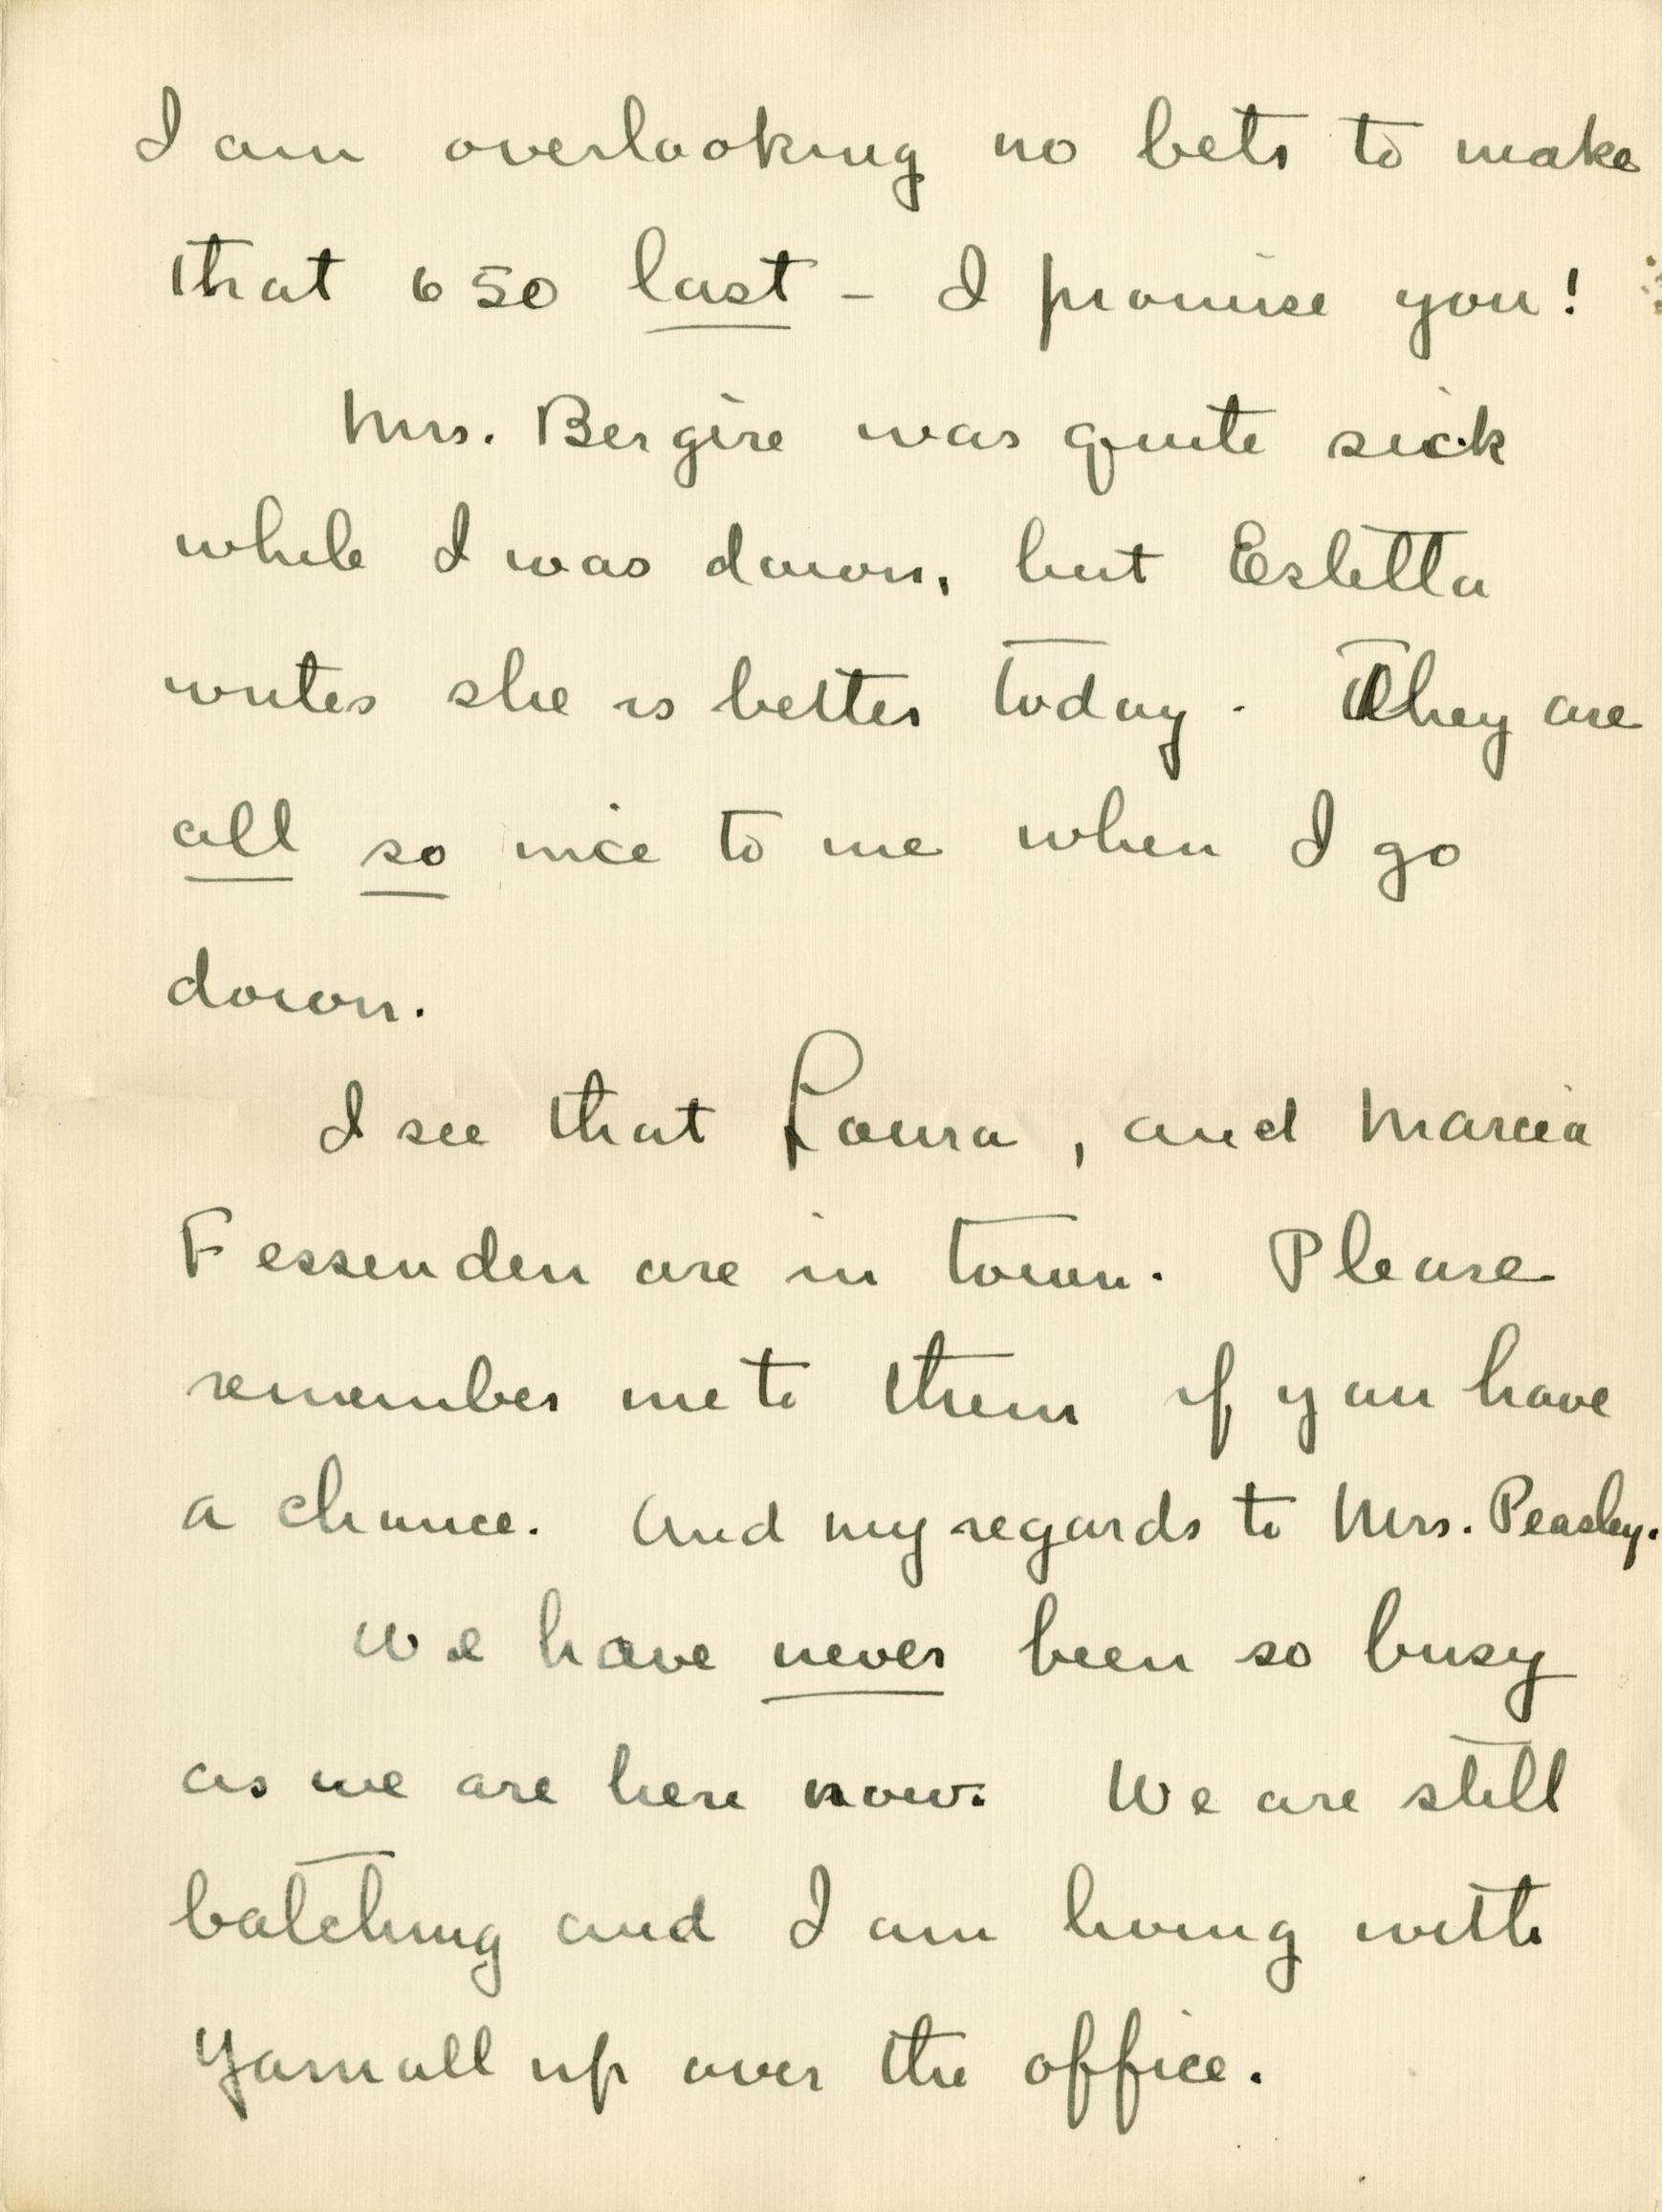 I am overlooking no bets to make
that 650 last – I promise you!
Mrs. Bergire was quite sick
while I was down, but Esletta
writes she is better today. They are
all so nice to me when I go
down.
I see that Laura, and Marcia
Fessenden are in town. Please
remember me to them if you have
a chance. And my regards to Mrs. Peasley.
We have never been so busy
as we are here now. We are still
batching and I am living with
Yarnall up over the office.